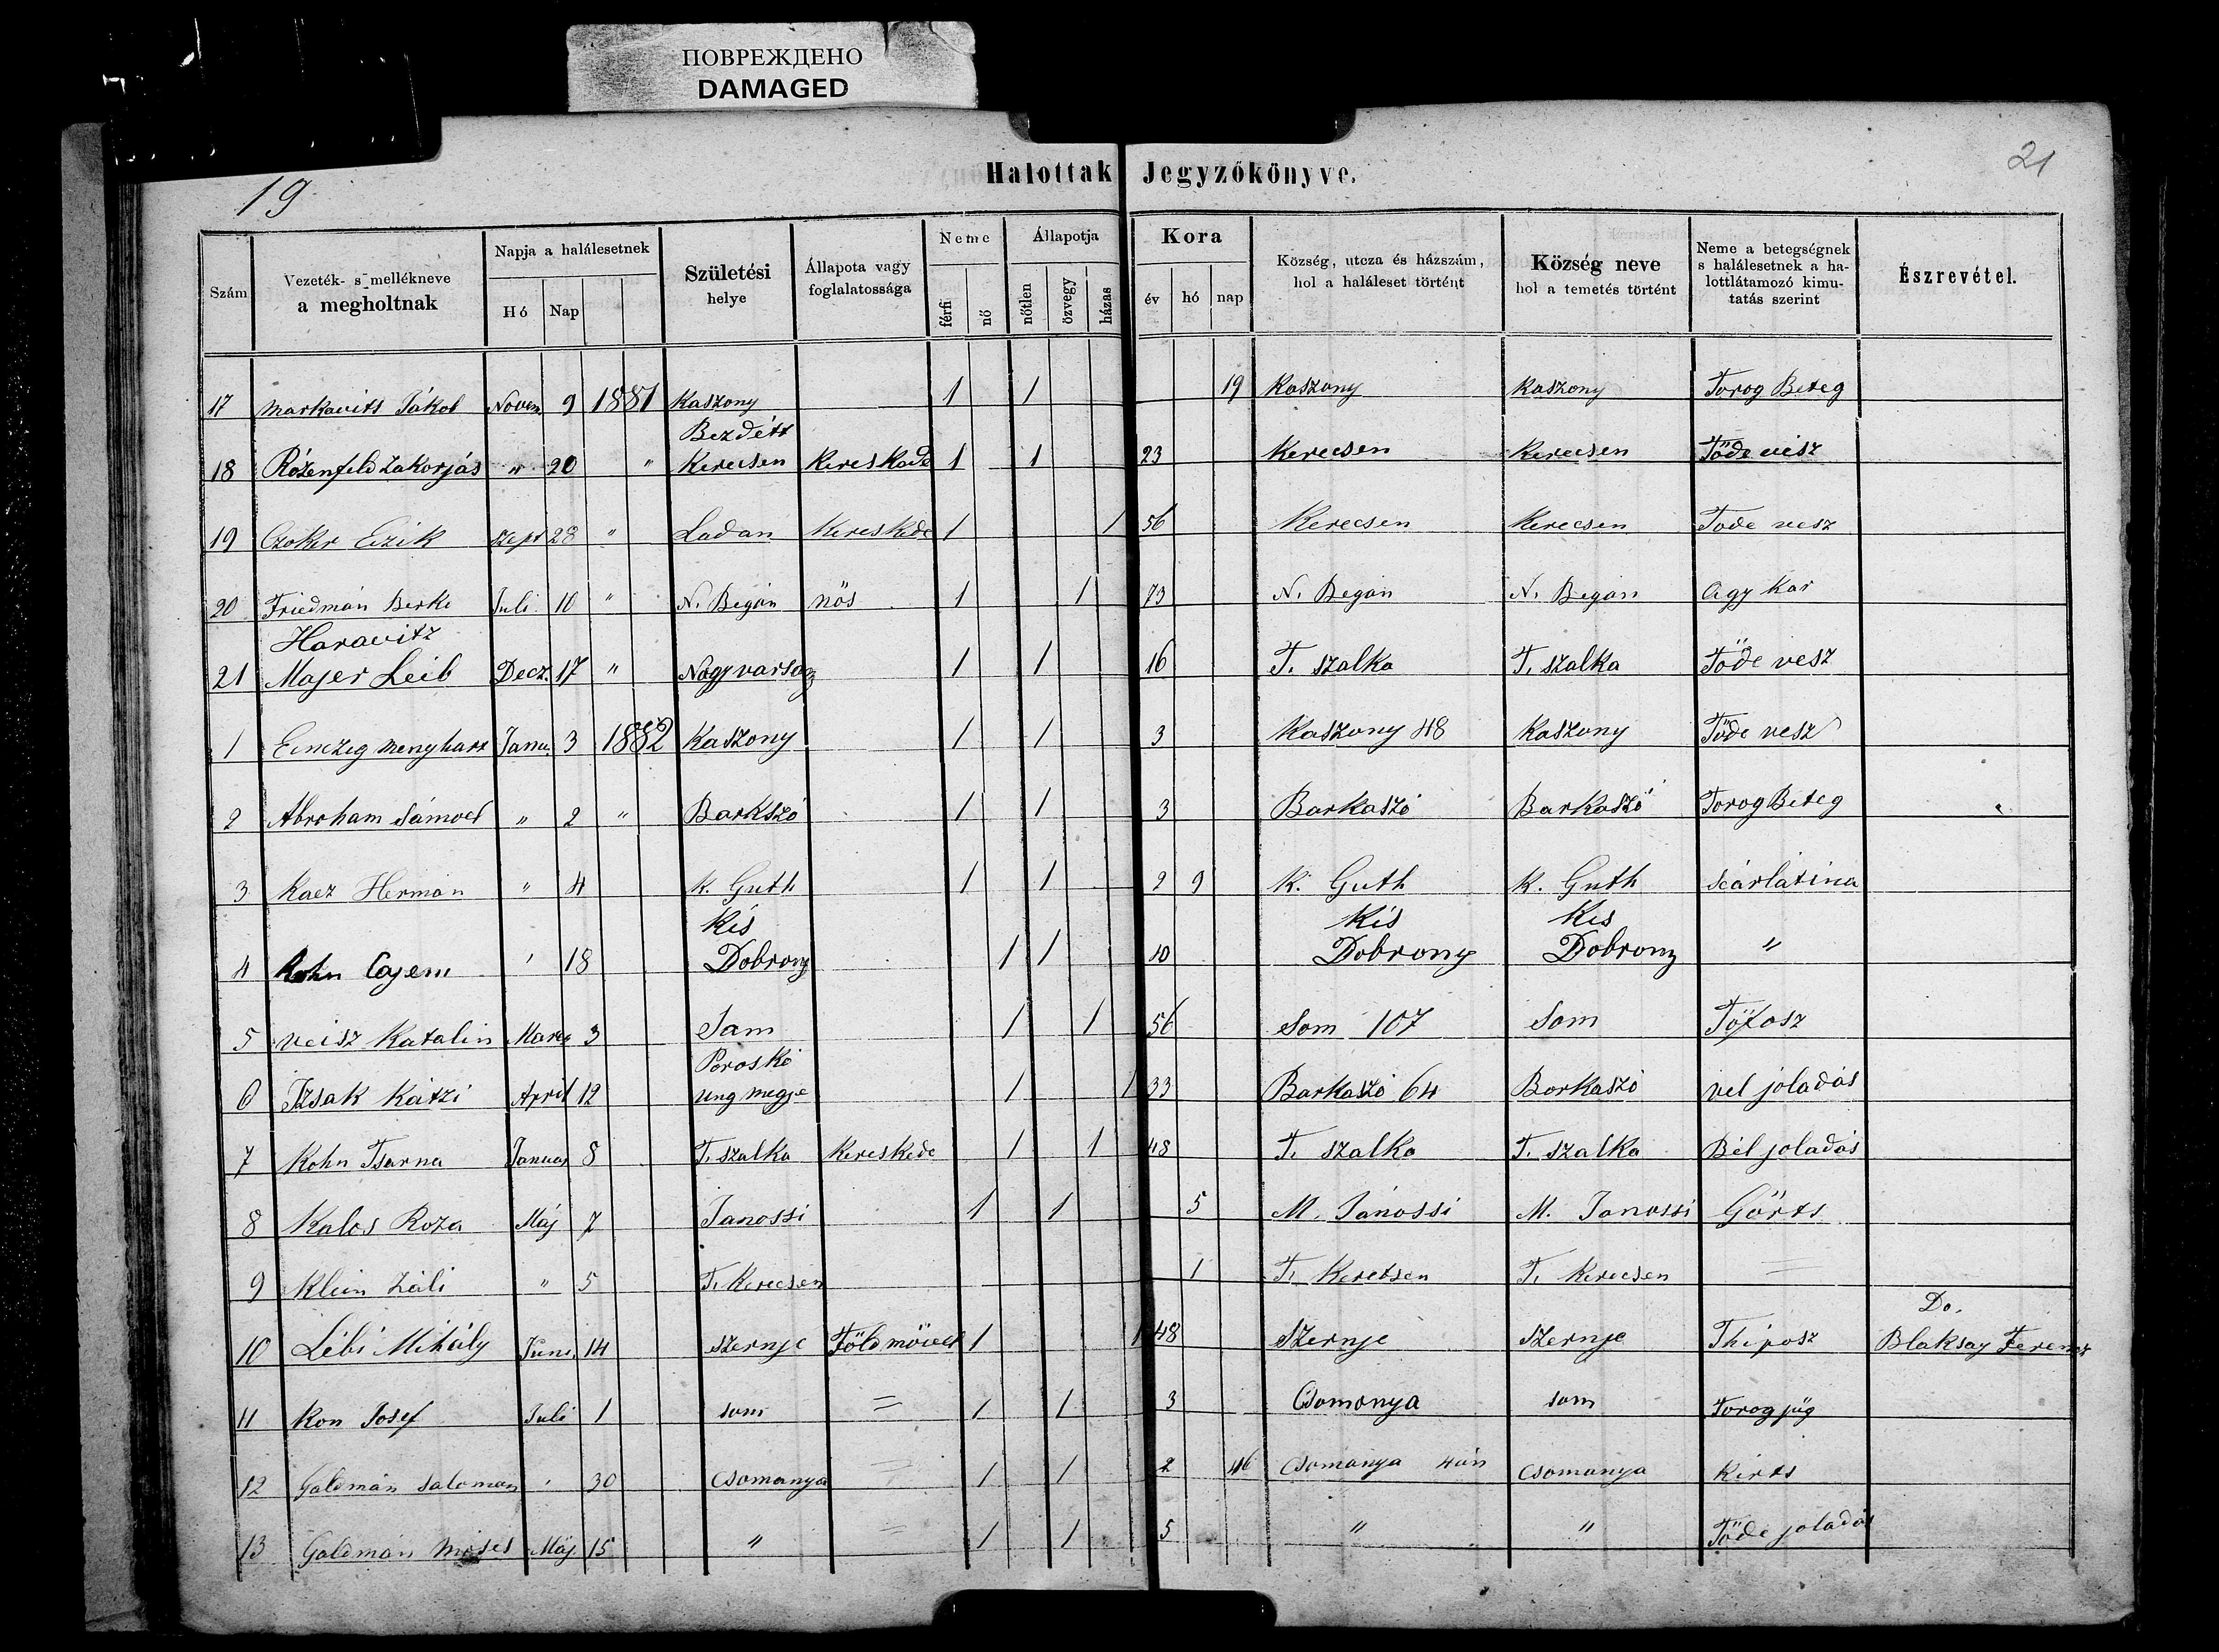 ПОВРЕЖДЕНО
DAMAGED
19
Halottak Jegyzőkönyve.
21
Szám
Vezeték- s mellékneve a megholtnak
Napja a halálesetnek
Hó
Nap
Születési helye
Állapota vagy foglalatossága
Neme
férfi
nő
Állapotja
nőtlen
özvegy
házas
Kora
év
hó
nap
Község, utcza és házszám, hol a haláleset történt
Község neve hol a temetés történt
Neme a betegségnek s halálesetnek a halottlátamozó kimutatás szerint
Észrevétel.
17 Markavits Jákob Novem 9 1881 Kaszony 1 1 19 Kaszony Kaszony Torog Beteg
Bezdétt
18 Rózenfeld Zakorjás " 20 " Kerecsen Kereskade 1 1 23 Kerecsen Kerecsen Töde vész
19 Czoker Eizik szept 28 " Ladan Kereskede 1 1 56 Kerecsen Kerecsen Töde vesz
20 Friedmán Berke Juli 10 " N. Begán nös 1 1 73 N. Begán N. Begán Agy Kar
Haravitz
21 Majer Leib Decz. 17 " Nagy varsang 1 1 16 T. szalka T. szalka Töde vesz
1 Einczig menyhart Janu. 3 1882 Kaszony 1 1 3 Kaszony 48 Kaszony Töde vesz
2 Abraham Sámoel " 2 " Barkszó 1 1 3 Barkaszó Barkaszó Torog Beteg
3 Kacz Hermán " 4 K. Guth 1 1 2 9 K. Guth K. Guth scárlátina
Kis Kis Kis
4 Kohn Cajem " 18 Dobrony 1 1 10 Dobrony Dobrony "
5 veisz Katalin Marcz 3 Sam 1 1 56 Som 107 Som
Poroskö
6 Izsak Kátzi April 12 ung megje 1 1 33 Barkaszó 64 Borkaszó vel joladás
7 Kohn Tsarna Januar 8 T. szalka Kereskede 1 1 48 T. szalka T. szalka Bél joladás
8 Kalos Roza Máj 7 Janossi 1 1 5 M. Jánossi M. Janossi Görts
9 Klein Záli " 5 T. Kerecsen 1 T. Keretsen T. Kerecsen =
Do.
10 Lébi Mihály Juni. 14 szernje Föld möielt 1 1 48 Szernje szernje Thiposz Blaksay Ferencz
11 Kon Josef Juli 1 som = 1 1 3 Csomonya som Torog jüg
12 Galdmán saloman " 30 Csomanya = 1 1 2 46 Csomanya Csomanya Kirts
13 Galdmán Móses Máj 15 " = 1 1 5 " " Töde joladás